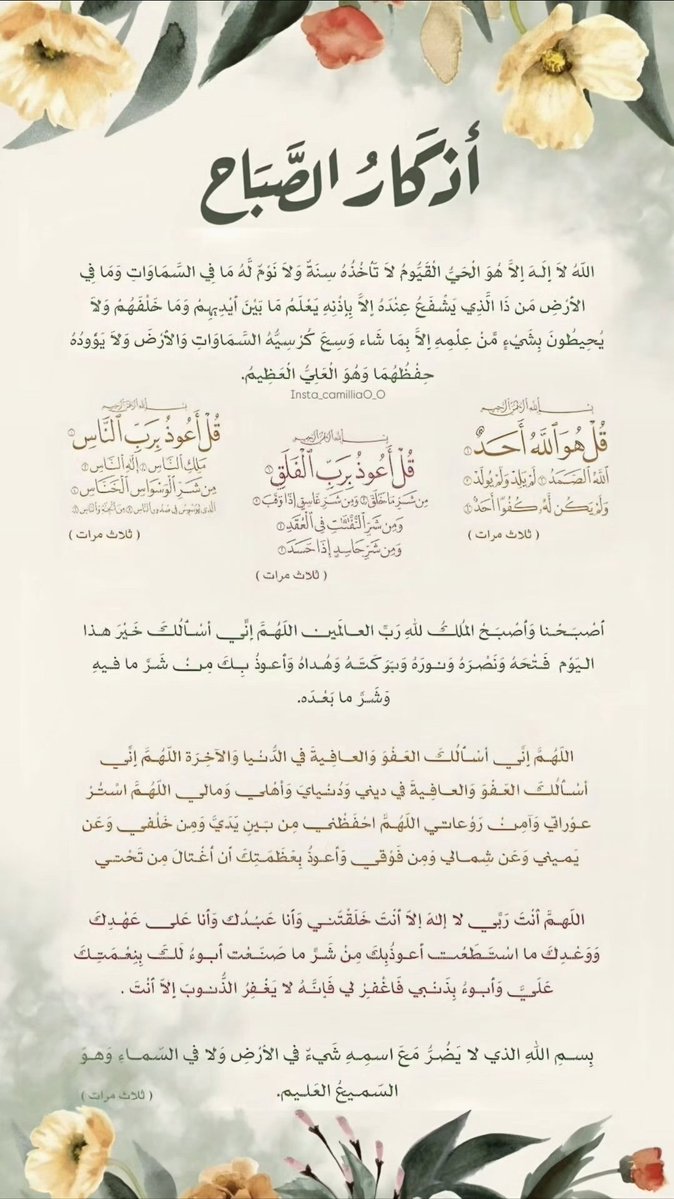 أذكَارُ الصَّبَاح
اللّهُ لاَ إِلَـهَ إِلاَّ هُوَ الْحَيُّ الْقَيُّومُ لاَ تَأْخُذُهُ سِنَةٌ وَلاَ نَوْمٌ لَّهُ مَا فِي السَّمَاوَاتِ وَمَا فِي
الأَرْضِ مَن ذَا الَّذِي يَشْفَعُ عِنْدَهُ إِلاَّ بِإِذْنِهِ يَعْلَمُ مَا بَيْنَ أَيْدِيهِمْ وَمَا خَلْفَهُمْ وَلاَ
يُحِيطُونَ بِشَيْءٍ مِّنْ عِلْمِهِ إِلاَّ بِمَا شَاء وَسِعَ كُرْسِيُّهُ السَّمَاوَاتِ وَالأَرْضَ وَلاَ يَؤُودُهُ
حِفْظُهُمَا وَهُوَ الْعَلِيُّ الْعَظِيمُ.
Insta_camilliaO_O
بِسْمِ اللَّهِ الرَّحْمَنِ الرَّحِيمِ
قُلْ هُوَ ٱللَّهُ أَحَدٌ ١
ٱللَّهُ ٱلصَّمَدُ ٢ لَمْ يَلِدْ وَلَمْ يُولَدْ ٣
وَلَمْ يَكُن لَّهُۥ كُفُوًا أَحَدٌۢ ٤
( ثلاث مرات )
بِسْمِ اللَّهِ الرَّحْمَنِ الرَّحِيمِ
قُلْ أَعُوذُ بِرَبِّ ٱلْفَلَقِ ١
مِن شَرِّ مَا خَلَقَ ٢ وَمِن شَرِّ غَاسِقٍ إِذَا وَقَبَ ٣
وَمِن شَرِّ ٱلنَّفَّٰثَٰتِ فِى ٱلْعُقَدِ ٤
وَمِن شَرِّ حَاسِدٍ إِذَا حَسَدَ ٥
( ثلاث مرات )
بِسْمِ اللَّهِ الرَّحْمَنِ الرَّحِيمِ
قُلْ أَعُوذُ بِرَبِّ ٱلنَّاسِ ١
مَلِكِ ٱلنَّاسِ ٢ إِلَٰهِ ٱلنَّاسِ ٣
مِن شَرِّ ٱلْوَسْوَاسِ ٱلْخَنَّاسِ ٤
ٱلَّذِى يُوَسْوِسُ فِى صُدُورِ ٱلنَّاسِ ٥ مِنَ ٱلْجِنَّةِ وَٱلنَّاسِ ٦
( ثلاث مرات )
أَصْبَـحْـنا وَأَصْبَـحَ المُلكُ للهِ رَبِّ العـالَمَـين اللّهُـمَّ إِنِّـي أسْـأَلُـكَ خَـيْرَ هـذا
الـيَوْم فَـتْحَهُ وَنَصْرَهُ وَنـورَهُ وَبَـرَكَتَـهُ وَهُـداهُ وَأَعـوذُ بِـكَ مِـنْ شَـرِّ ما فـيهِ
وَشَـرِّ ما بَعْـدَه.
اللّهُـمَّ إِنِّـي أسْـأَلُـكَ العَـفْوَ وَالعـافِـيةَ في الدُّنْـيا وَالآخِـرَة اللّهُـمَّ إِنِّـي
أسْـأَلُـكَ العَـفْوَ وَالعـافِـيةَ في ديني وَدُنْـيايَ وَأهْـلي وَمالـي اللّهُـمَّ اسْـتُرْ
عـوْراتي وَآمِـنْ رَوْعاتـي اللّهُـمَّ احْفَظْـني مِن بَـينِ يَدَيَّ وَمِن خَلْفـي وَعَن
يَمـيني وَعَن شِمـالي وَمِن فَوْقـي وَأَعـوذُ بِعَظَمَـتِكَ أن أُغْـتالَ مِن تَحْتـي
اللّهـمَّ أَنْتَ رَبِّـي لا إلهَ إلاّ أَنْتَ خَلَقْتَنـي وَأَنا عَبْـدُك وَأَنا عَلـى عَهْـدِكَ
وَوَعْـدِكَ ما اسْتَـطَعْـت أَعـوذُبِكَ مِنْ شَـرِّ ما صَنَـعْت أَبـوءُ لَـكَ بِنِعْـمَتِـكَ
عَلَـيَّ وَأَبـوءُ بِذَنْـبي فَاغْفـِرْ لي فَإِنَّـهُ لا يَغْـفِرُ الذُّنـوبَ إِلاّ أَنْتَ .
بِسـمِ اللهِ الذي لا يَضُـرُّ مَعَ اسمِـهِ شَيءٌ في الأرْضِ وَلا في السّمـاءِ وَهـوَ
السّمـيعُ العَلـيم.
( ثلاث مرات )